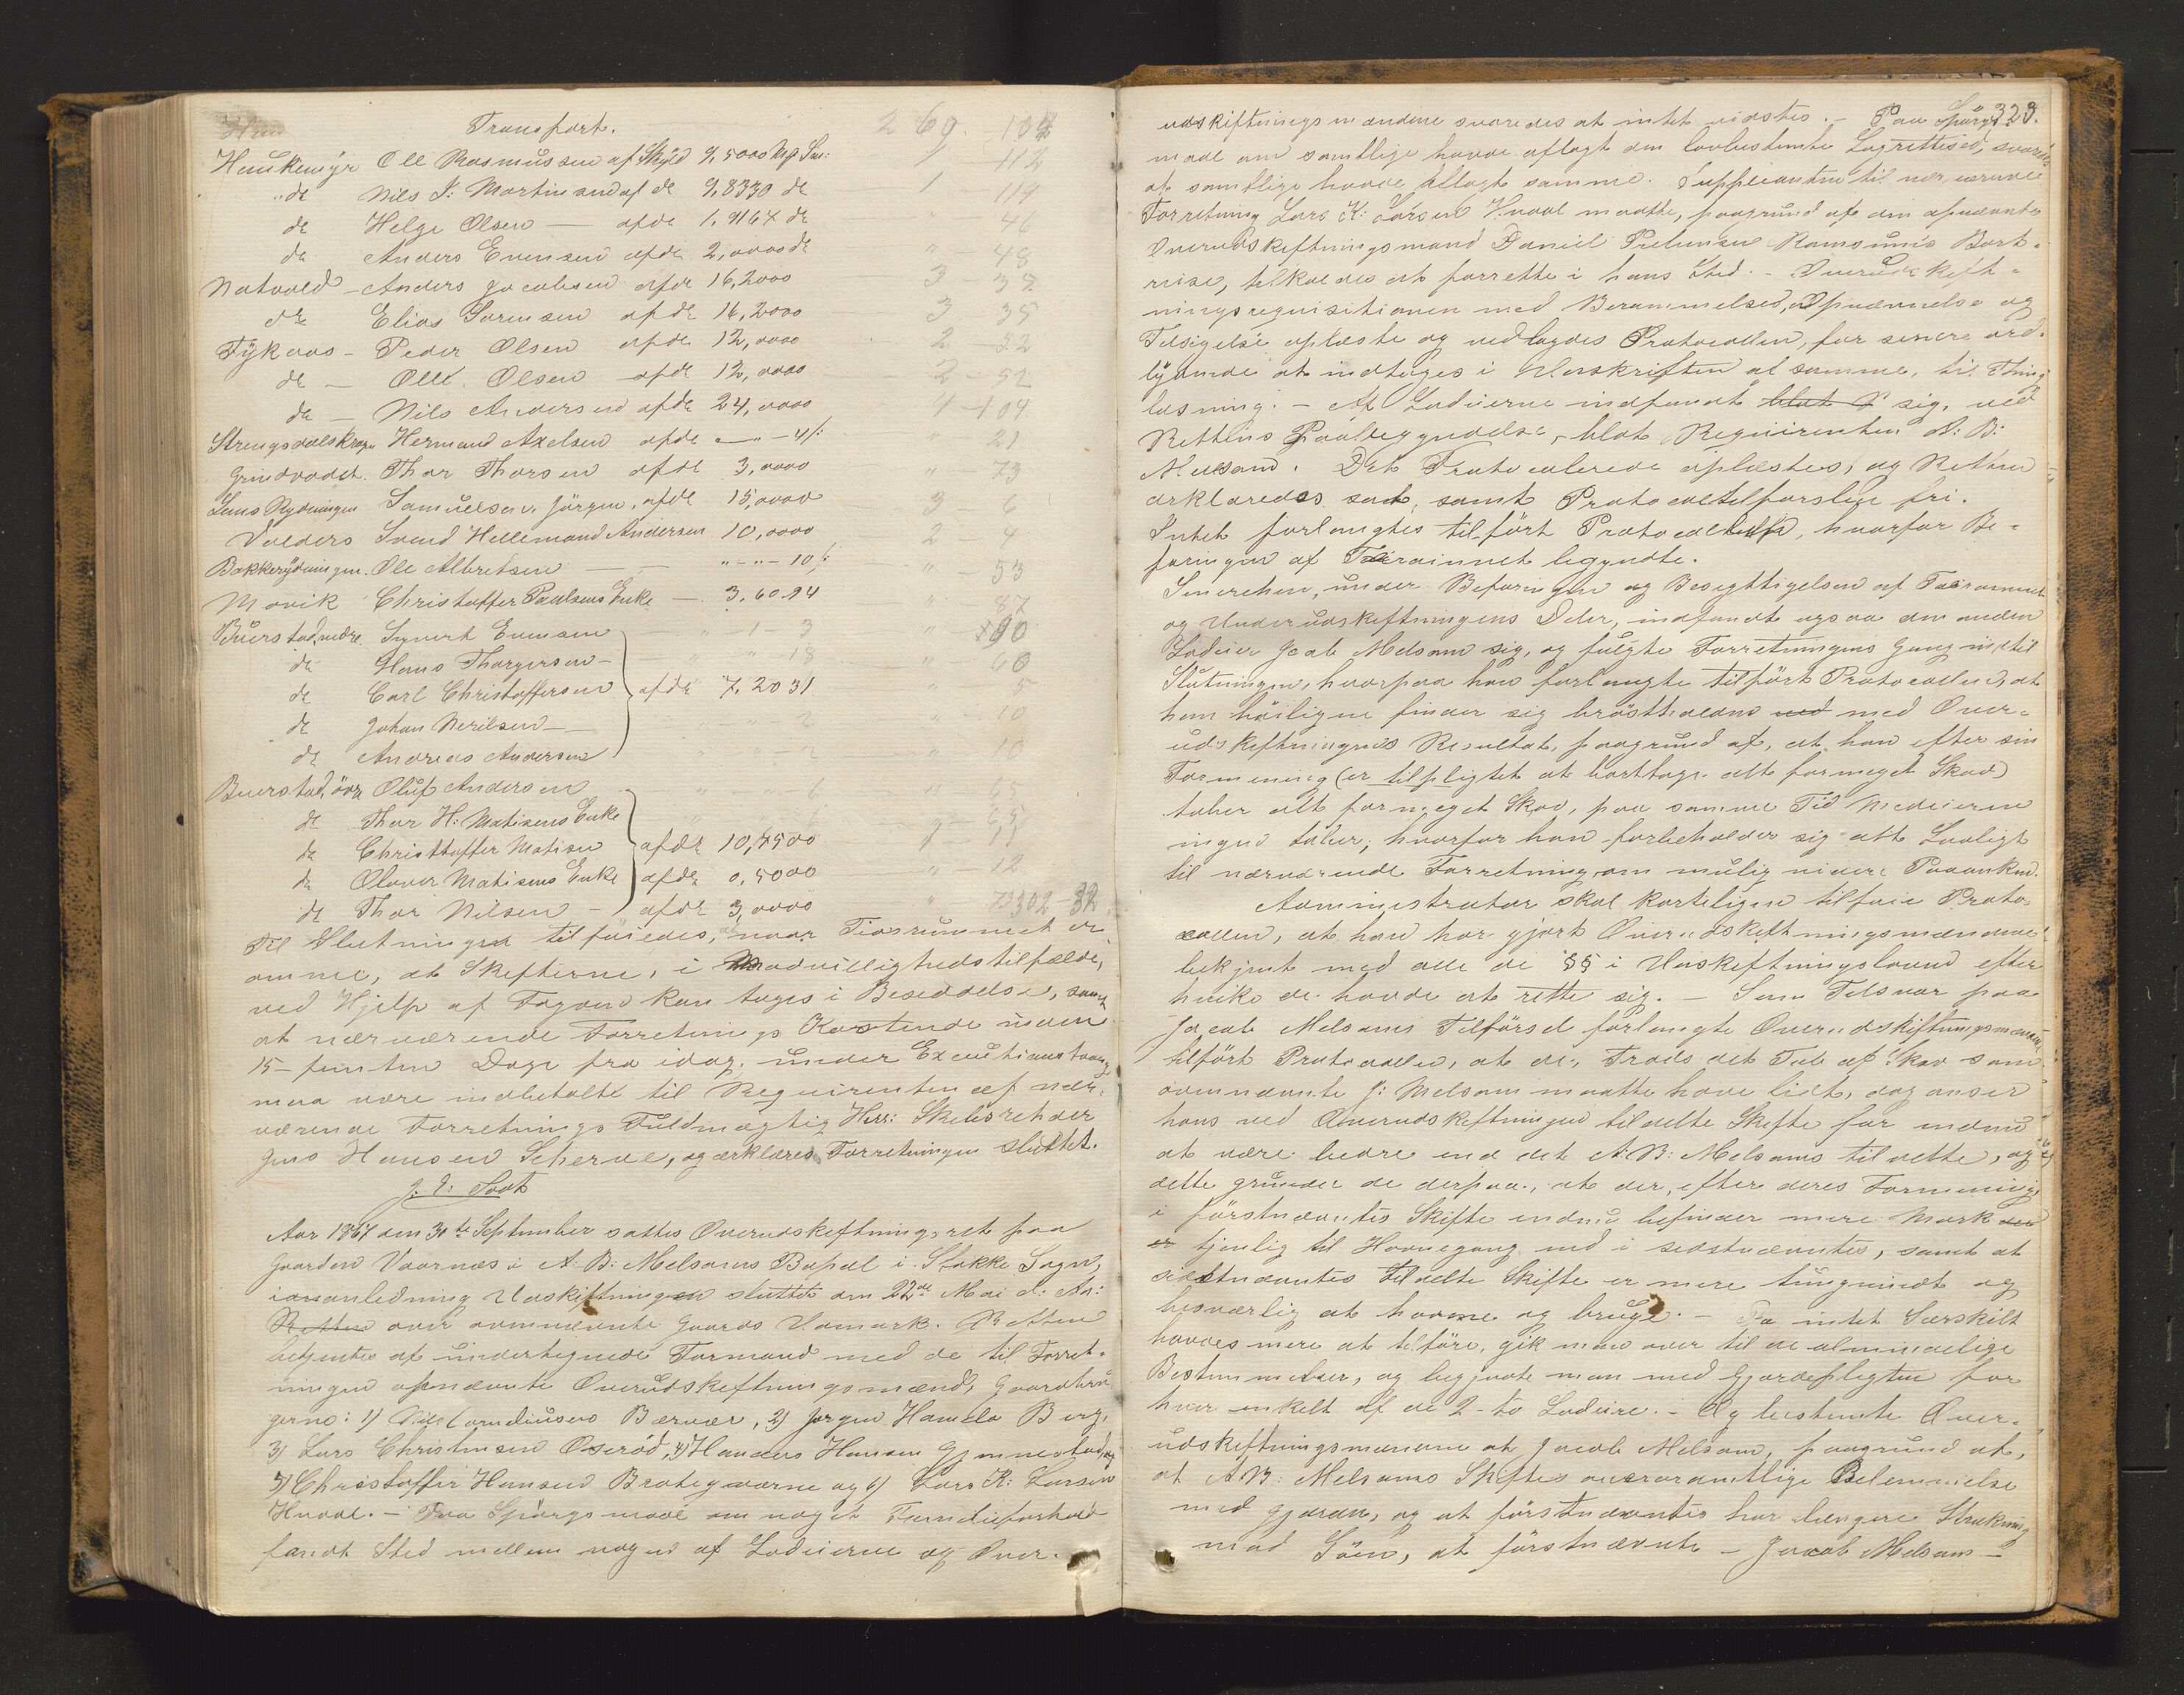 Transport. 2 69. 104
Haukemyr Ole Rasmussen af Skyld 9,5000 1 112
do Nils J: Martinsen af do 9,8330 do 1 119
do Helge Olsen — af do 1,9164 do " 46
do Anders Evensen af do 2,0000 do " 48
Natvold — Anders Jacobsen af do 16,2000 3 38
do Elias Sørensen af do 16,2000 3 35
Fýkaas — Peder Olsen af do 12,0000 2 52
do — Olle Olsen af do 12,0000 2 52
do — Nils Andersen af do 24,0000 4 104
Strengsdalskroge Hermand Axelsen af do " 21
Grindvadet. Thor Thorsen af do 3,0000 " 73
Samuelsen Jörgen, af do 15,0000 3 6
Valders Svend Hellemand Andersen 10,0000 2 4
Bakkerýdningen. Ole Albretsen — " - " - 10 " 53
Movik Christoffer Paulsens Enke — 3.60.94 " 87
Buerstad, nedre Evensen " 1 - 3 " 90
do Hans Thorgersen — " " 18 " 60
do Carl Christoffersen af do 7.2031 " 5
do Johan — " " 2 " 10
do Andreas Andersen " " - 2 " 10
Buerstad, övre Oluf Andersen " " 6 " 65
do Thor H: Matisens Enke
do Christoffer Matisen af do 10,7500 1 11
do Oliver Matisens Enke af do 0,5000 " 12
do Thor Nilsen — af do 3,0000 " 302-32
Til Slutningen tilföiedes, at naar Tidsrummet er
omme, at Skifterne, i Modvillighedstilfælde,
ved Hjelp af Fogden kan tages i Besiddelse, samt
at nærværende Forretnings Kostende inden
15 – femten Dage fra idag, under Executionstvang,
maa være indbetalte til Requirenten af nær-
værende Forretnings Fuldmægtig Herr: Skibsrehder
Jens Hansen Scherve, og erklæres Forretningen sluttet.
J. E. Soot
Aar 1867 den 30te September sattes Overudskiftningsret paa
Gaarden Vaarnæs i A. B: Melsoms Bopæl i Stokke Sogn,
i anledning Udskiftningen sluttet den 22de Mai d: Aa:
Retten over ovennævnte Gaards Udmark. Retten
betjentes af undertegnede Formand med de til Forret-
ningen opnævnte Overudskiftningsmænd, Gaardbru-
gerne: 1) Nils Corneliusens Bærvær, 2) Jørgen Berg,
3) Lars Christensen Oserød, 4) Hansen Gjennestad, og
5) Christoffer Hansen Brategjærne og 6) Lars K: Larsen
Hvaal. — Paa Spörgsmaal om noget Familieforhold
fandt Sted mellem nogen af Lodeierne og Over-
323.
udskiftningsmændene svaredes at intet vidstes. — Paa Spörgs-
maal om samtlige havde aflagt den lovbestemte Lagretteséd, svaredes
at samtlige havde aflagt samme. Suppleanten til nærværende
Forretning Lars K: Larsen Hvaal maatte, paagrund af den opnævnte
Overudskiftningsmand Daniel Ramsums Bort-
reise, tilkaldes at forrette i hans Sted. — Overudskift-
ningsrequisitionen med Berammelses, Opnævnelse og
Tilsigelse oplæste og vedlagdes Protocollen, for senere ord-
lÿdende at indtages i Udskriften af samme, til Thing-
læsning. — Af Lodeierne indfandt blot sig, ved
Rettens Paabegyndelse, blot Requirenten A: B:
Melsom. Det Protocollerede oplæstes, og Retten
erklæredes sat, samt Protocoltilførslen fri.
Intet forlangtes tilfört Protocollen, hvorfor Be-
faringen af Terrainnet begyndte.
Imidlertid, under Befaringen og Besigttigelsen af Terrainnet
og Underudskiftningens Deler, indfandt ogsaa den anden
Lodeier Jacob Melsom sig, og fulgte Forretningens Gang indtil
Slutningen, hvorpaa han forlangte tilfört Protocollen, at
han höiligen finder sig brøstholden ved med Over-
udskiftningens Resultat, paagrund af, at han efter sin
Formening (er tilpligtet at borttage alt formeget Skov)
taber alt formeget Skov, paa samme Tid Medeieren
ingen taber; hvorfor han forbeholder sig alt Lovligt
til nærværende Forretning, om mulig videre Paaanken.
Administrator skal korteligen tilføie Proto-
collen, at han har gjort Overudskiftningsmændene
bekjent med alle de §§ i Udskiftningsloven efter
hvilke de havde at rette sig. — Som Tilsvar paa
Jacob Melsoms Tilförsel forlangte Overudskiftningsmændene
tilfört Protocollen, at de, trods det Tab af Skov som
ovennævnte J: Melsom maatte have lidt, dog anser
hans ved Overudskiftningen tildelte Skifte for endnu
at være bedre end det A. B: Melsoms tildelte, og
dette grunder de derpaa, at der, efter deres Formening,
i förstnævntes Skifte endnu befinder mere Mark der
er tjenlig til Havnegang end i sidstnævntes, samt at
sidstnævntes tildelte Skifte er mere tungvindt og
besværlig at havne og bruge. — Da intet Særskilt
havdes mere at tilföre, gik man over til de almindelige
Bestemmelser, og begyndte man med Gjærdepligten for
hver enkelt af de 2-to Lodeiere. — Og bestemte Over-
udskiftningsmændene at Jacob Melsom, paagrund af,
at A. B: Melsoms Skiftes overordentlige Belemmelse
med Gjærder, og at förstnævntes har længere Strækning
mod Söen, at förstnævnte — Jacob Melsom —